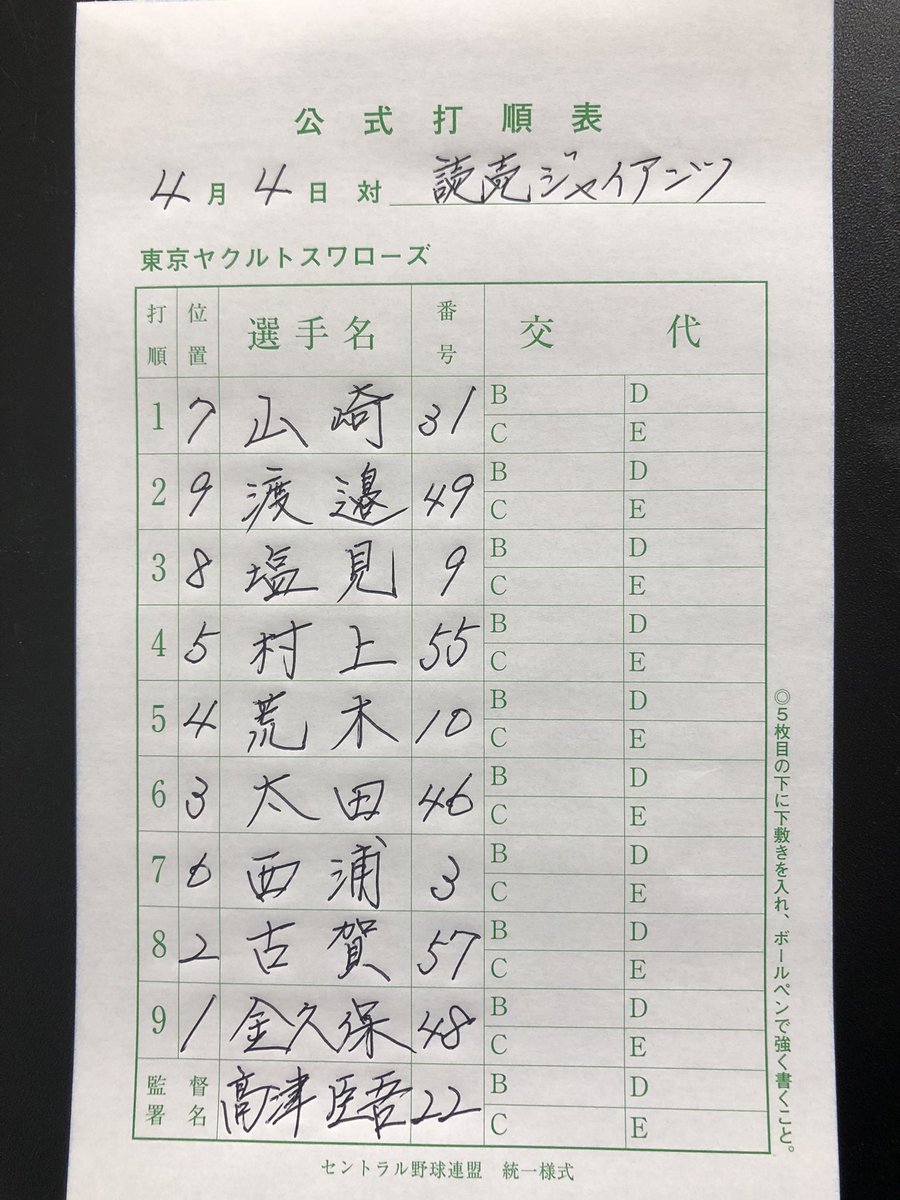 公式打順表
4月4日対 読売ジャイアンツ
東京ヤクルトスワローズ
打順 位置 選手名 番号 交代
1 7 山崎 31 B D
C E
2 9 渡邉 49 B D
C E
3 8 塩見 9 B D
C E
4 5 村上 55 B D
C E
5 4 荒木 10 B D
C E
6 3 太田 46 B D
C E
7 6 西浦 3 B D
C E
8 2 古賀 57 B D
C E
9 1 金久保 48 B D
C E
監督署名 高津臣吾 22 B D
C E
セントラル野球連盟 統一様式
◎5枚目の下に下敷きを入れ、ボールペンで強く書くこと。